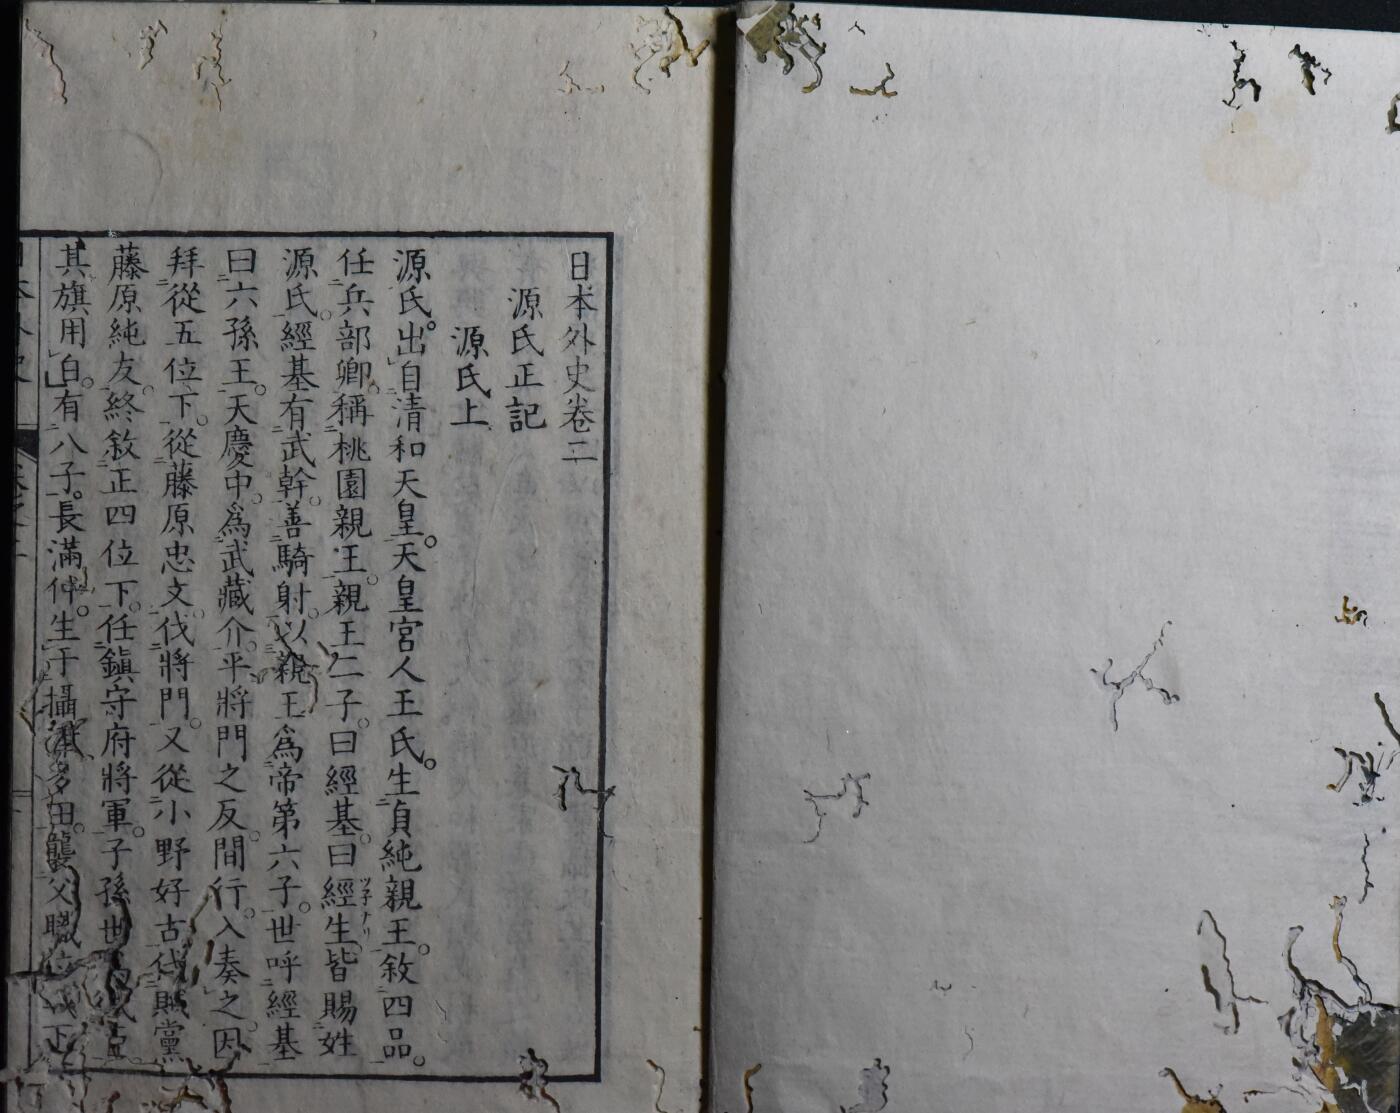 日本外史卷二
源氏正記
源氏上
源氏。出自清和天皇。天皇宮人王氏。生貞純親王。敘四品。
任兵部卿。稱桃園親王。親王二子。曰經基。曰經生。皆賜姓
ツ子ナリ
源氏。經基有武幹。善騎射。以親王爲帝第六子。世呼經基
曰六孫王。天慶中。爲武藏介。平將門之反。間行入奏之。因
拜從五位下。從藤原忠文。伐將門。又從小野好古。伐賊黨
藤原純友。終敘正四位下。任鎭守府將軍。子孫世
其旗用白。有八子。長滿仲。生于攝津多田。襲父職位